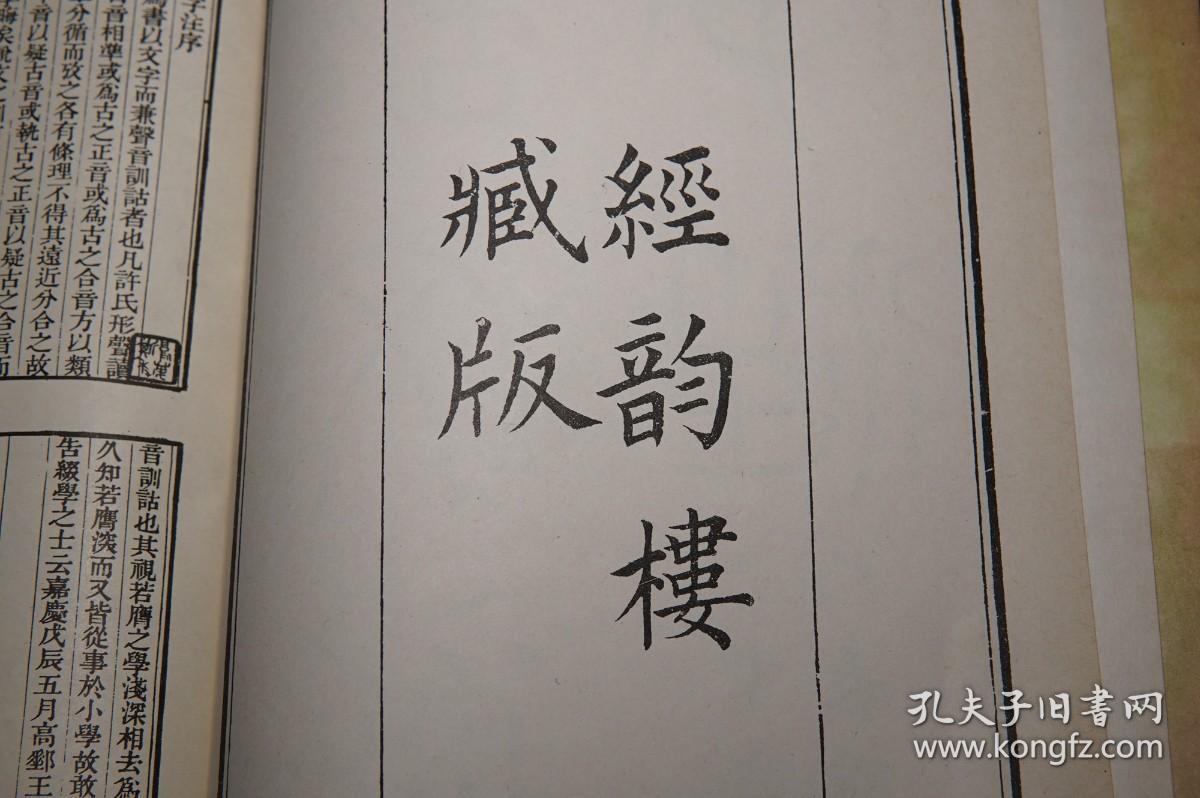 經韵樓
臧版
字注序
爲書以文字而兼聲音訓詁者也凡許氏形聲讀
音相準或爲古之正音或爲古之合音方以類
分循而攷之各有條理不得其遠近分合之故
音以疑古音或執古之正音以疑古之合音而
音訓詁也其視若膺之學淺深相去爲
久知若膺深而又皆從事於小學故敢
告綴學之士云嘉慶戊辰五月高郵王
孔夫子旧书网
www.kongfz.com